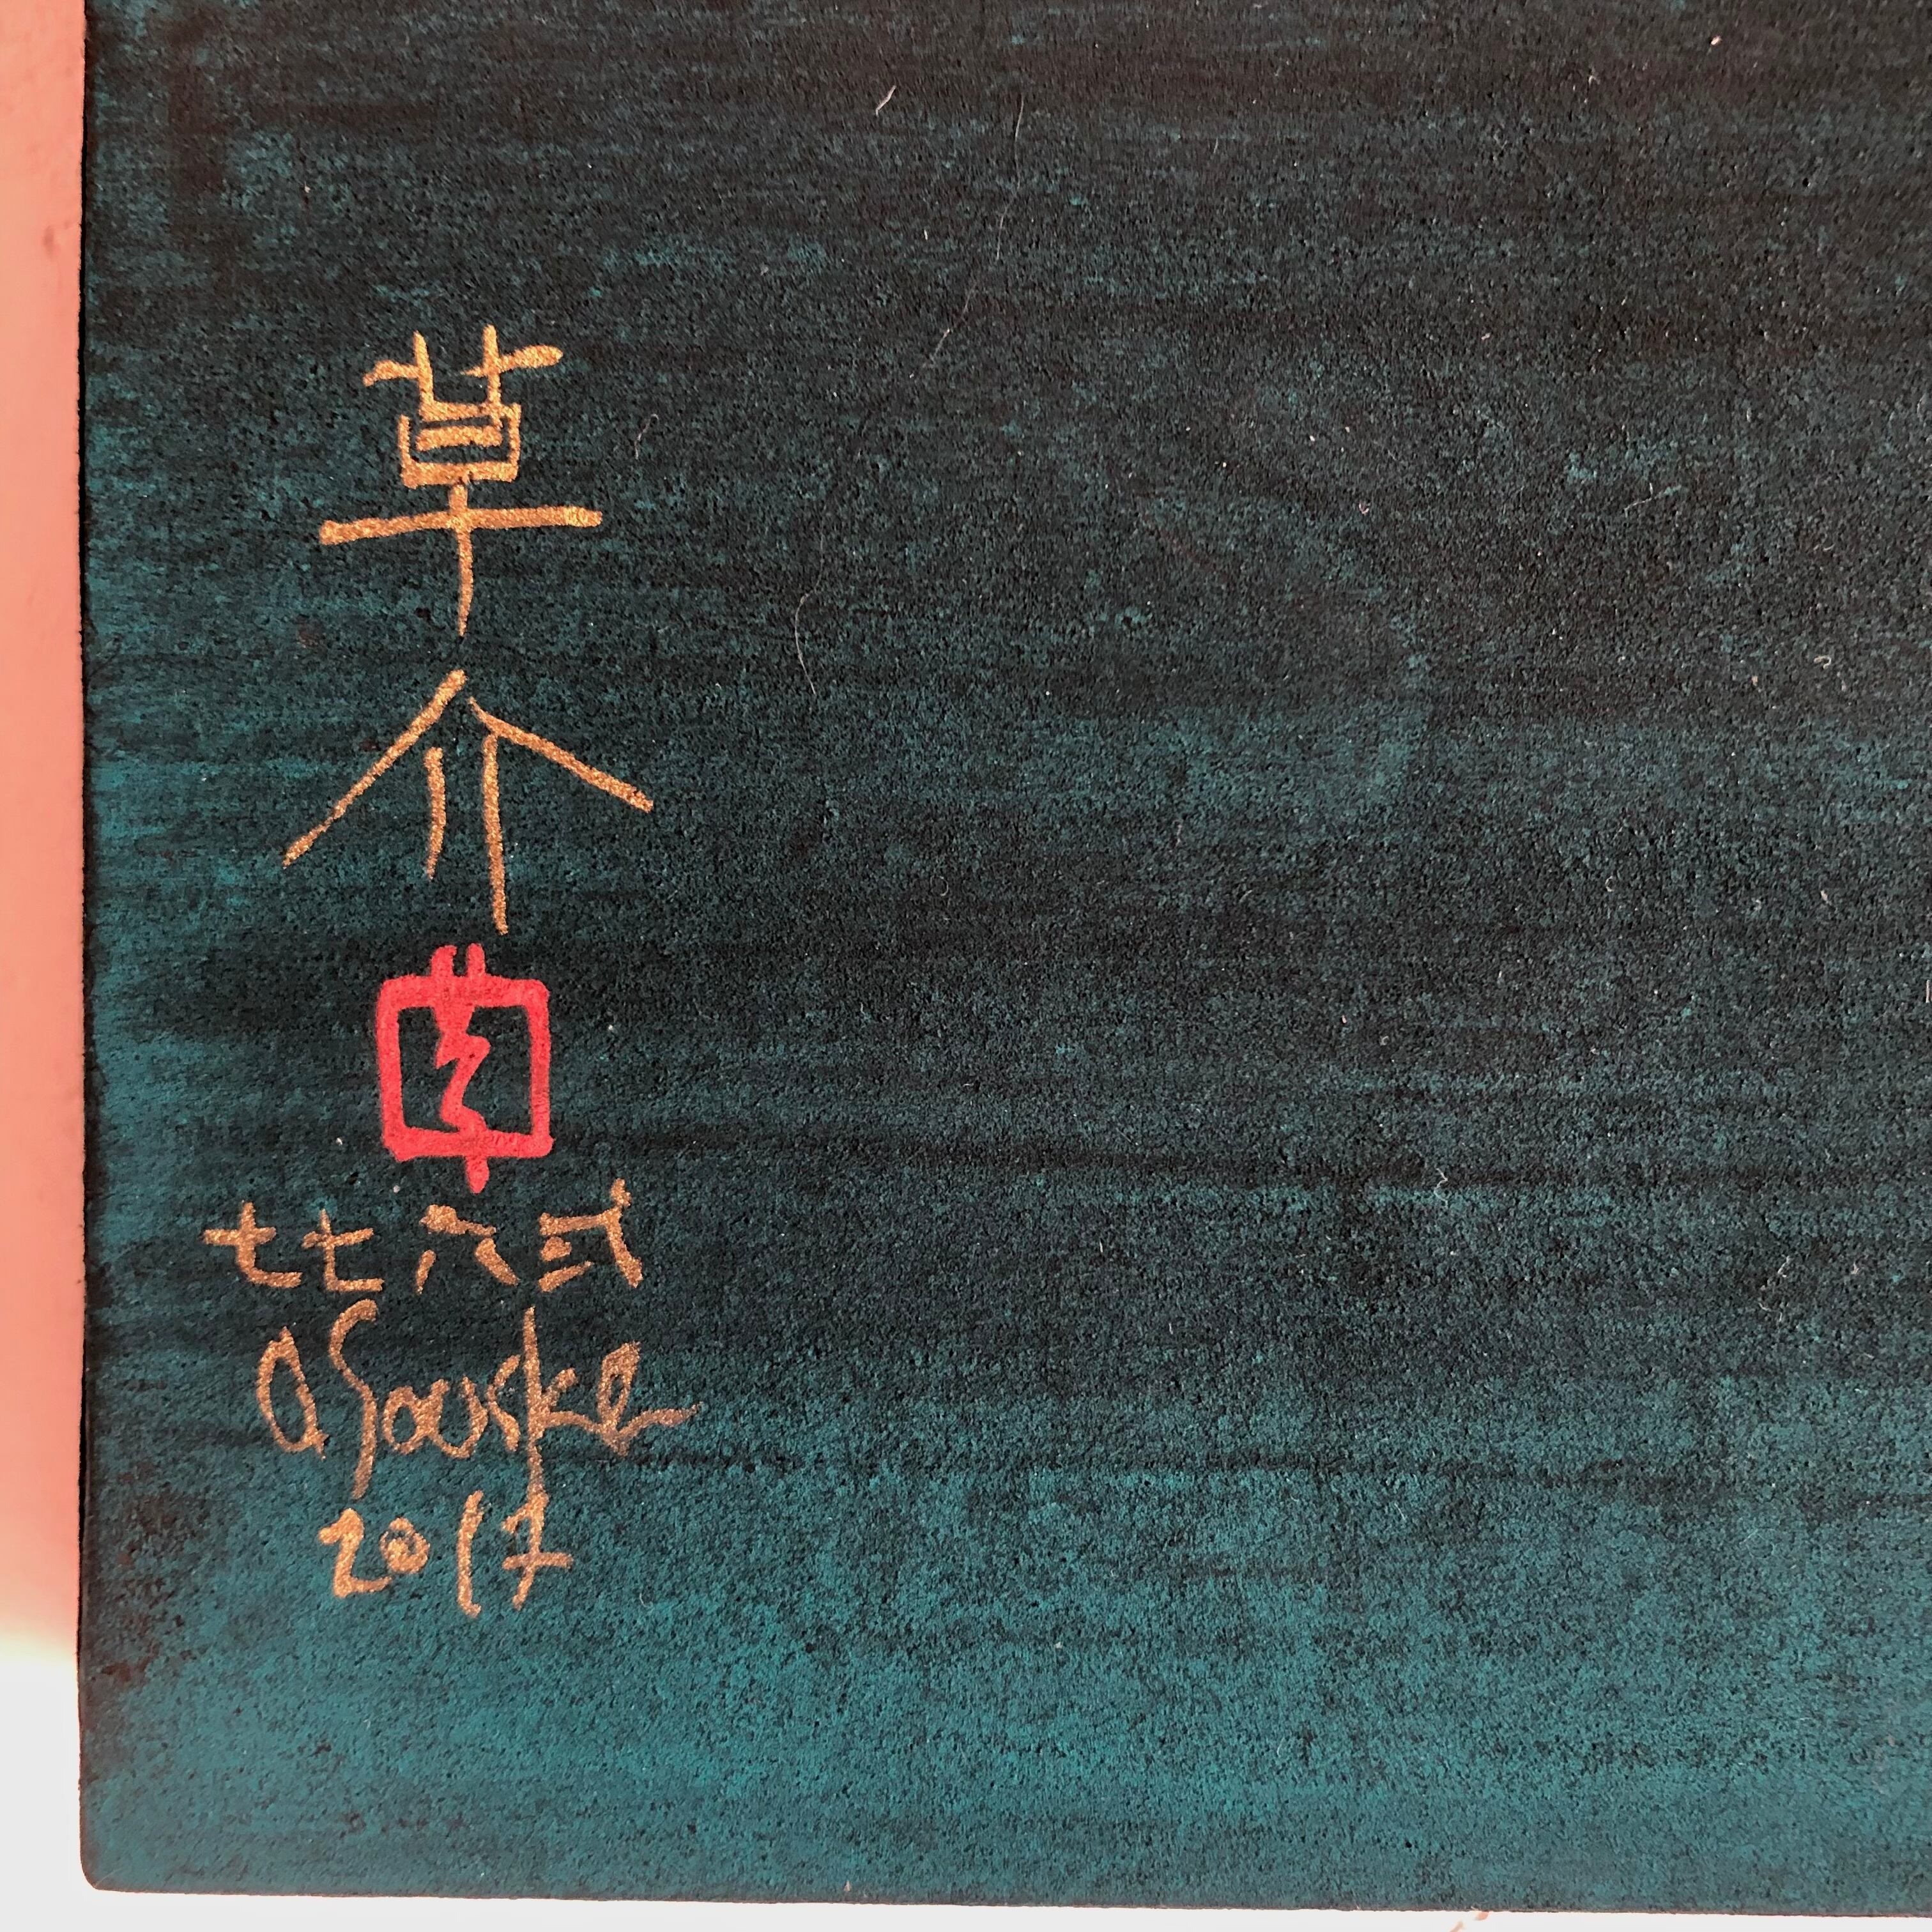 草
介
七七六弐
a Souske
2017